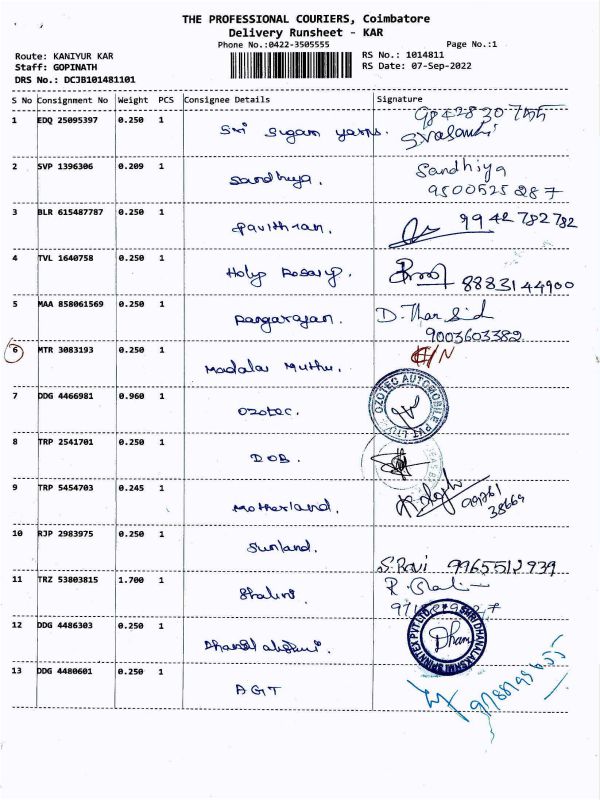 THE PROFESSIONAL COURIERS, Coimbatore
Delivery Runsheet - KAR
Phone No.:0422-3505555 Page No.:1
Route: KANIYUR KAR RS No.: 1014811
Staff: GOPINATH RS Date: 07-Sep-2022
DRS No.: DCJB101481101
S No Consignment No Weight PCS Consignee Details Signature
1 EDQ 25095397 0.250 1 Sri Sugam yarns.
2 SVP 1396306 0.209 1 Sandhiya. Sandhiya
9500525287
3 BLR 615487787 0.250 1 Pavithran. 9942782782
4 TVL 1640758 0.250 1 Holy Rosary. 8883144900
5 MAA 858061569 0.250 1 Rangarajan. D. Thar Sid
9003603382
6 MTR 3083193 0.250 1 Madalai Muthu.
7 DDG 4466981 0.960 1 Ozotec. OZOTEC AUTOMOBILE PVT LTD
8 TRP 2541701 0.250 1 DOB.
9 TRP 5454703 0.245 1 Motherland. 99761
38669
10 RJP 2983975 0.250 1 Sunland. S. Ravi 9965512939
11 TRZ 53803815 1.700 1 Shalini
12 DDG 4486303 0.250 1 Dhanalakshmi. SHRI DHANALAKSHMI SPINNTEX PVT LTD
13 DDG 4480601 0.250 1 AGT